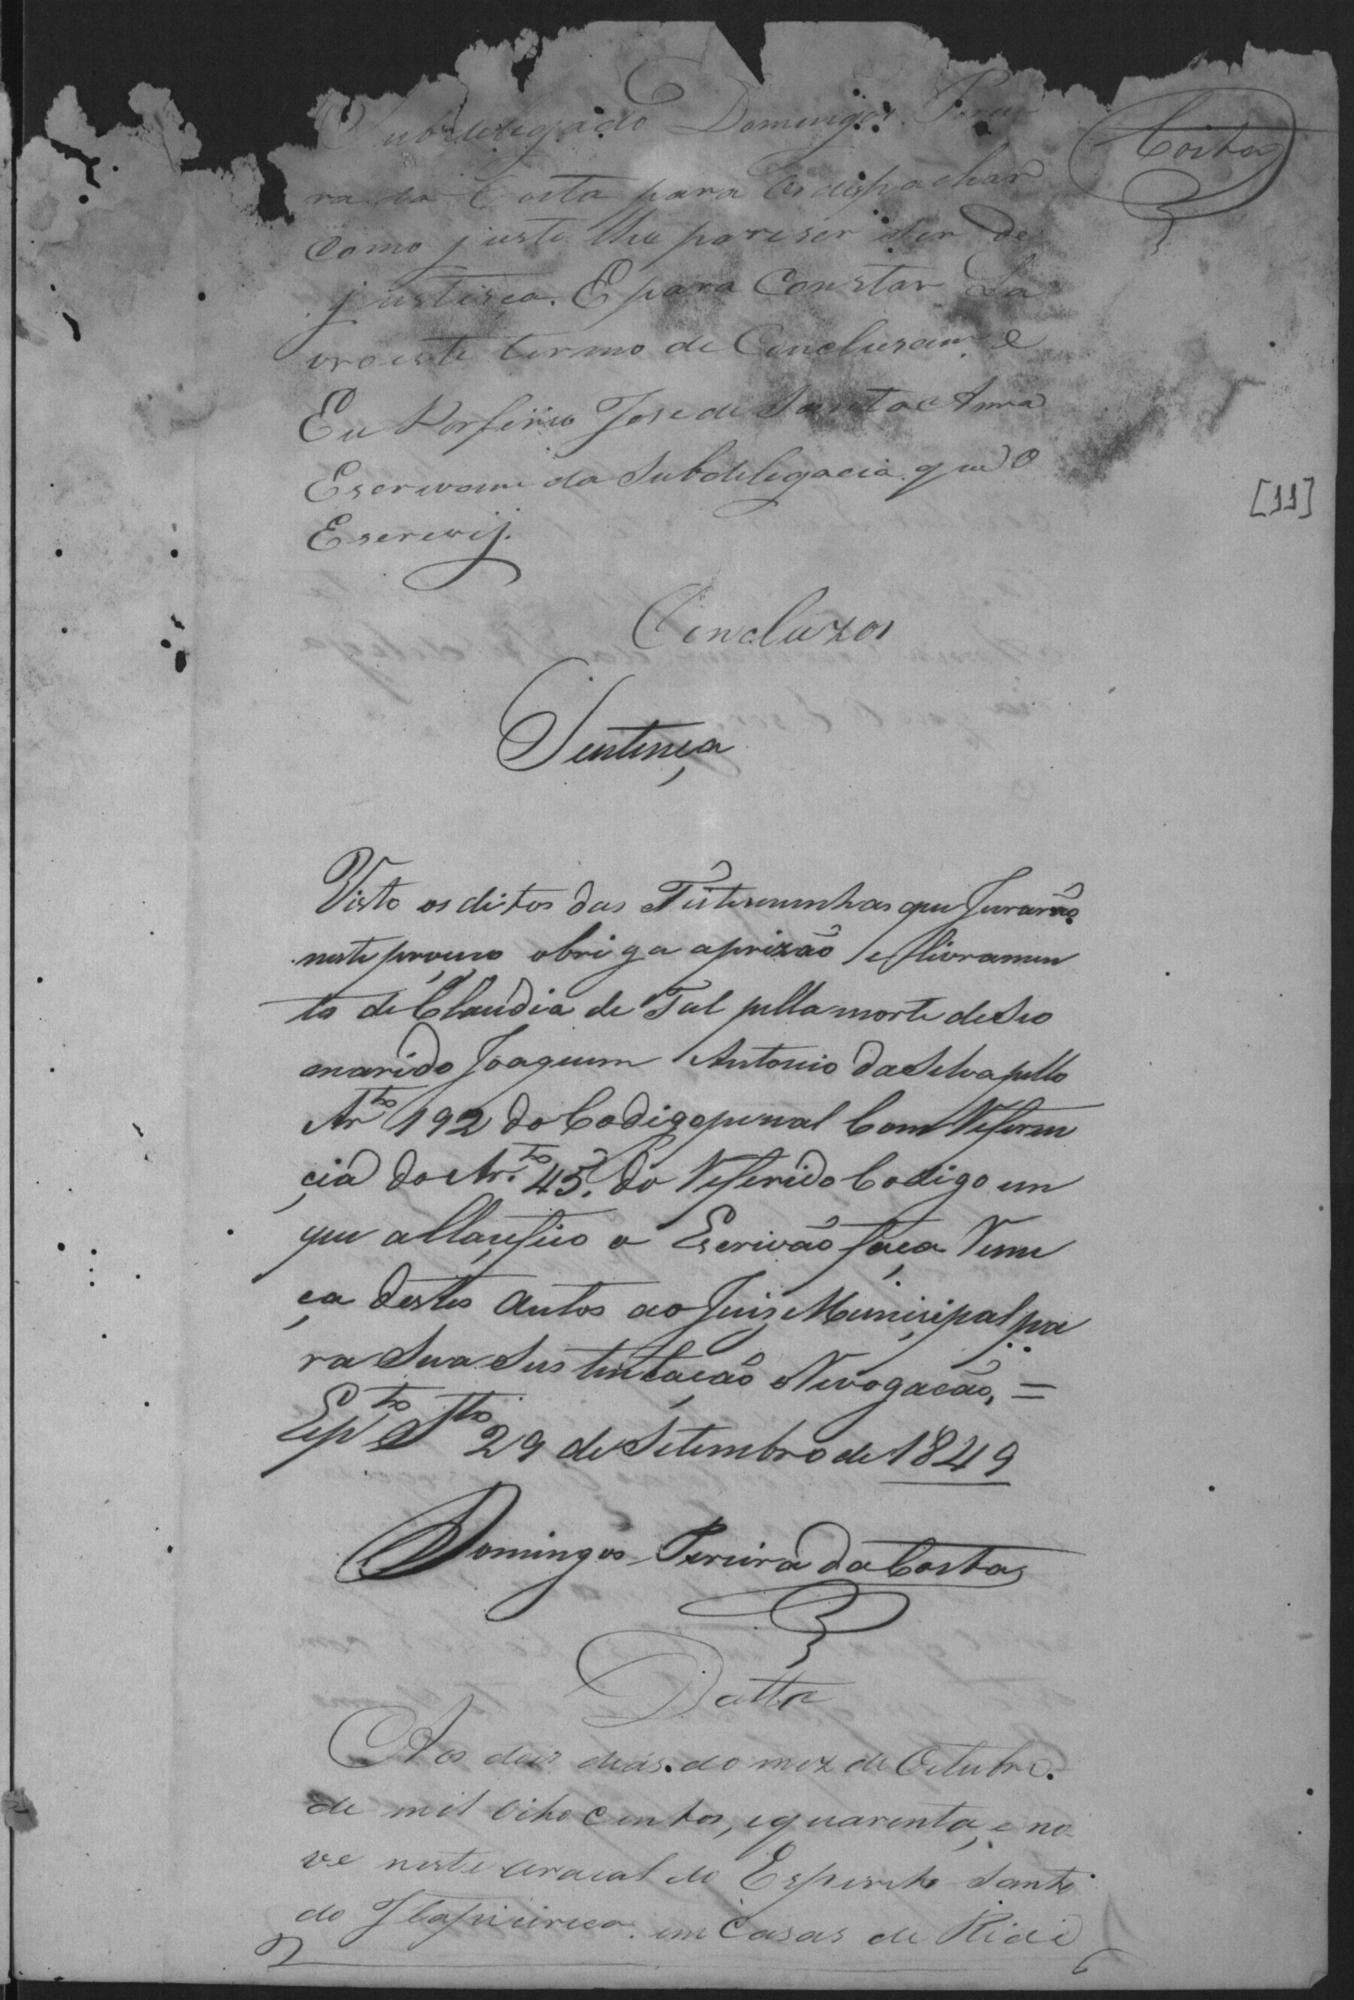 Subdelegado Domingos Perei
Costa
ra da Costa para os dispachar
como justo lhe pareser ser de
justisca. E para Constar La
vro este termo de Concluzam e
Eu Porfirio Jose de Santa Anna
Escrivam da Subdelegacia que o
Escrevij.
[11]
Concluzos
Sentença
Visto os ditos das Testemunhas que Jurarão
neste proceço obriga aprizão e livramen
to de Claudia de Tal pella morte de Seo
marido Joaquim Antonio da Silva pello
Art.º 192 do Codigo penal Com Referen
cia do Art.º 45. do Referido Codigo em
que a Claçefico o Escrivão faça Reme
ça destes autos ao Juis Municipal pa
ra Sua Sustentação Revogacão, =
Espto Sto 29 de Setembro de 1849
Domingos Pereira da Costa
Datta
Aos dois dias do mez de Oitubro.
de mil oito centos, e quarenta, e no
ve neste araial do Espirito Santo
do Itapicirica em Casas de Rizi